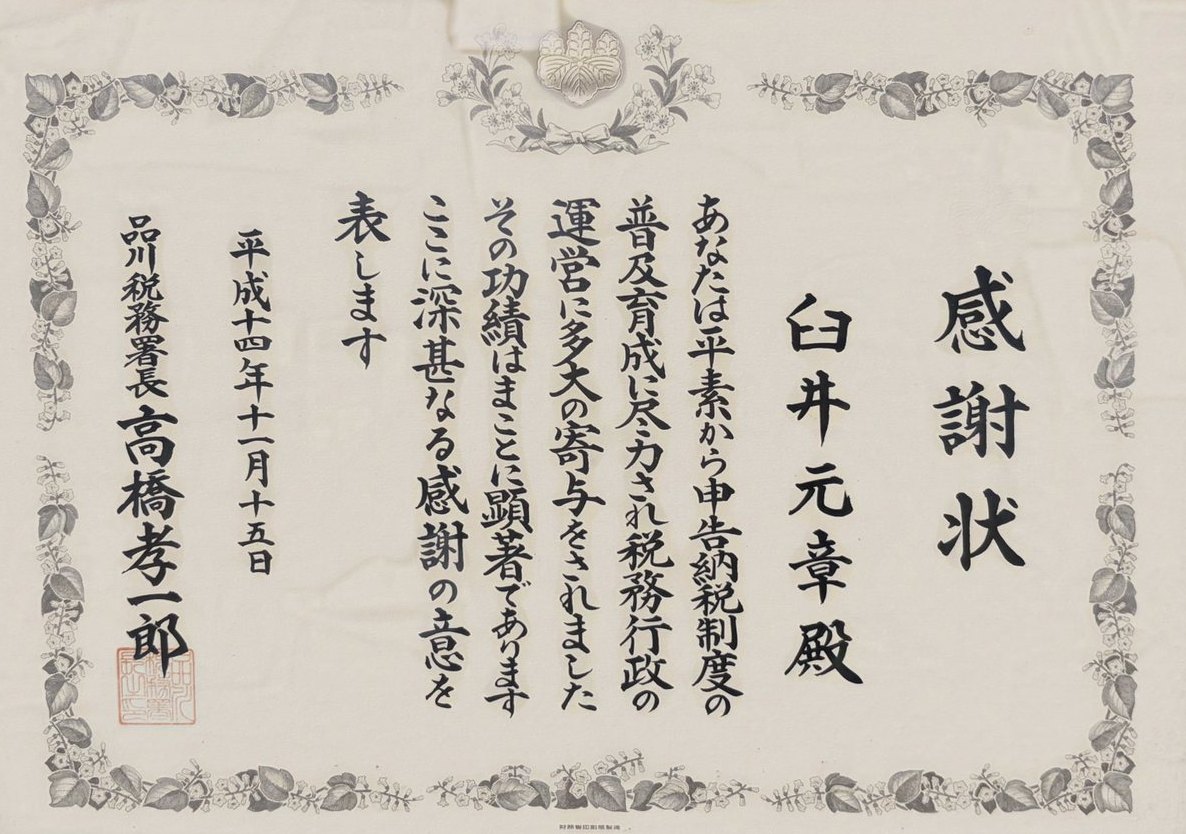 感謝状
臼井元章殿
あなたは平素から申告納税制度の
普及育成に尽力され税務行政の
運営に多大の寄与をされました
その功績はまことに顕著であります
ここに深甚なる感謝の意を
表します
平成十四年十一月十五日
品川税務署長 高橋孝一郎